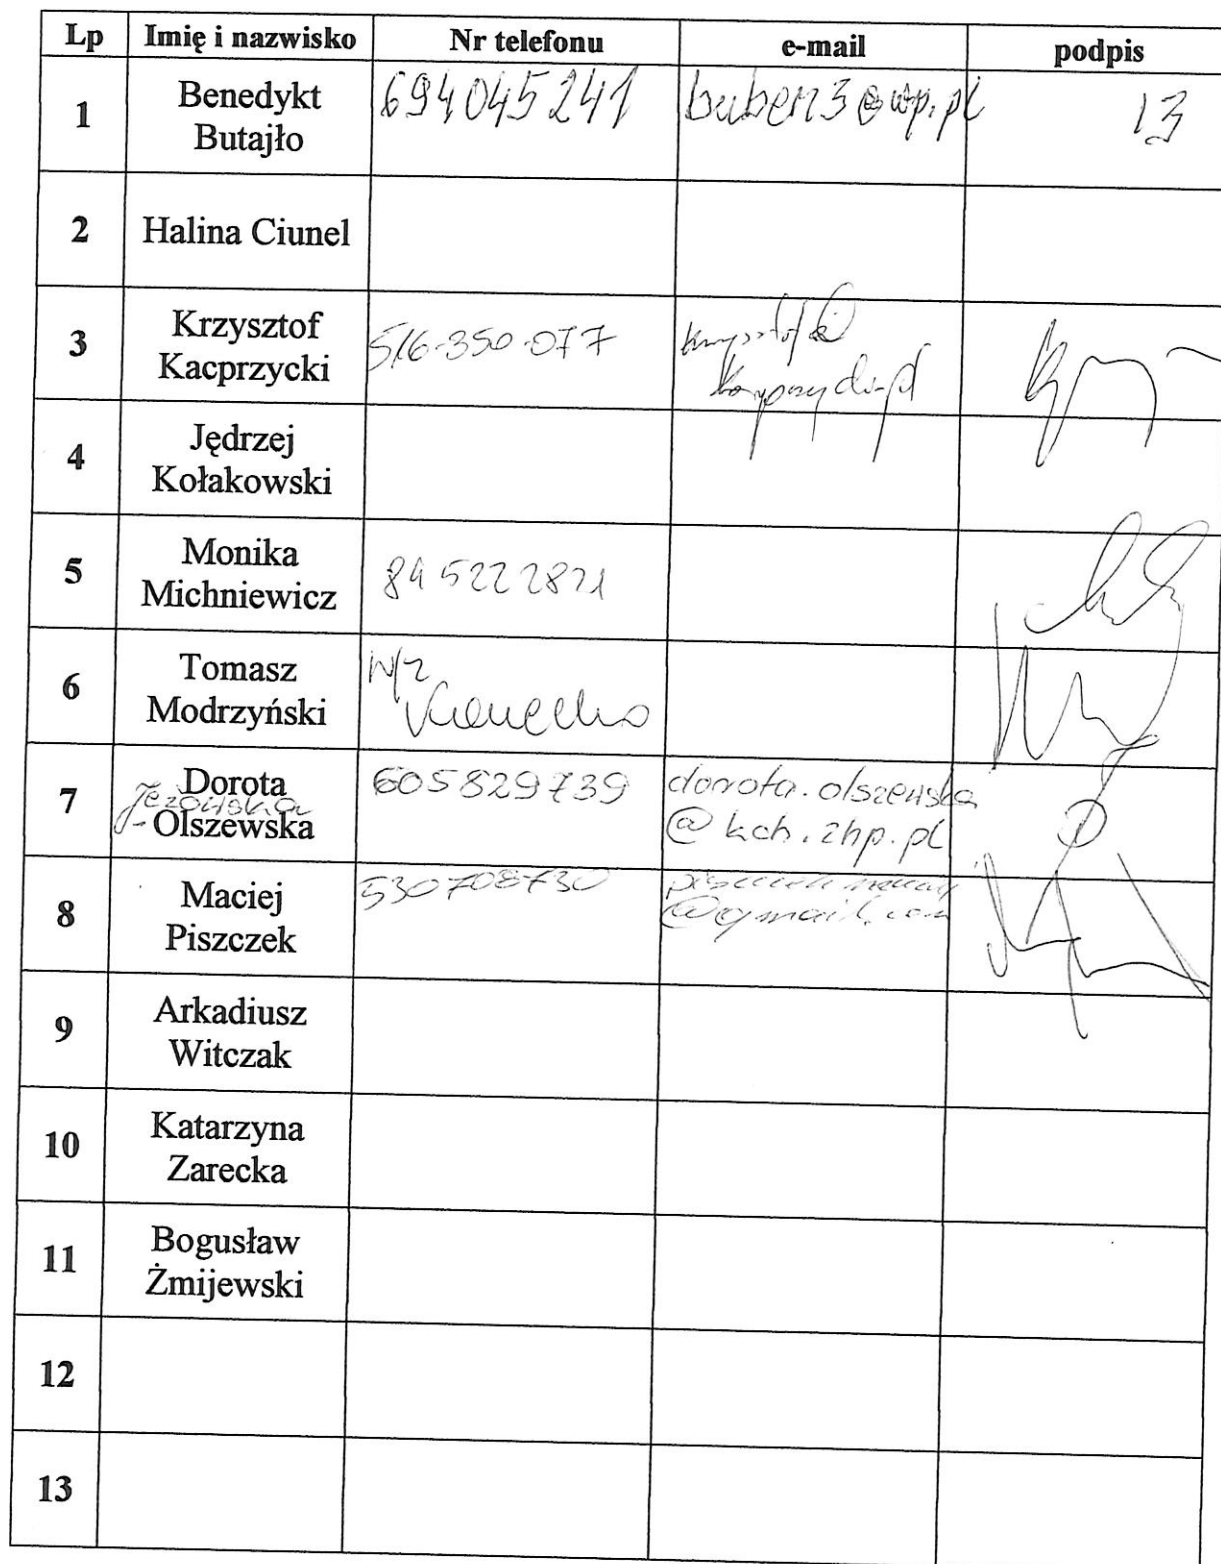 Lp Imię i nazwisko Nr telefonu e-mail podpis
1 Benedykt Butajło 694045241 buben3@wp.pl 13
2 Halina Ciunel
3 Krzysztof Kacprzycki 516-350-077
4 Jędrzej Kołakowski
5 Monika Michniewicz 895222821
6 Tomasz Modrzyński w/z
7 Dorota Jezowska - Olszewska 605829739 dorota.olszewska @kch.zhp.pl
8 Maciej Piszczek 530708730 @gmail.com
9 Arkadiusz Witczak
10 Katarzyna Zarecka
11 Bogusław Żmijewski
12
13